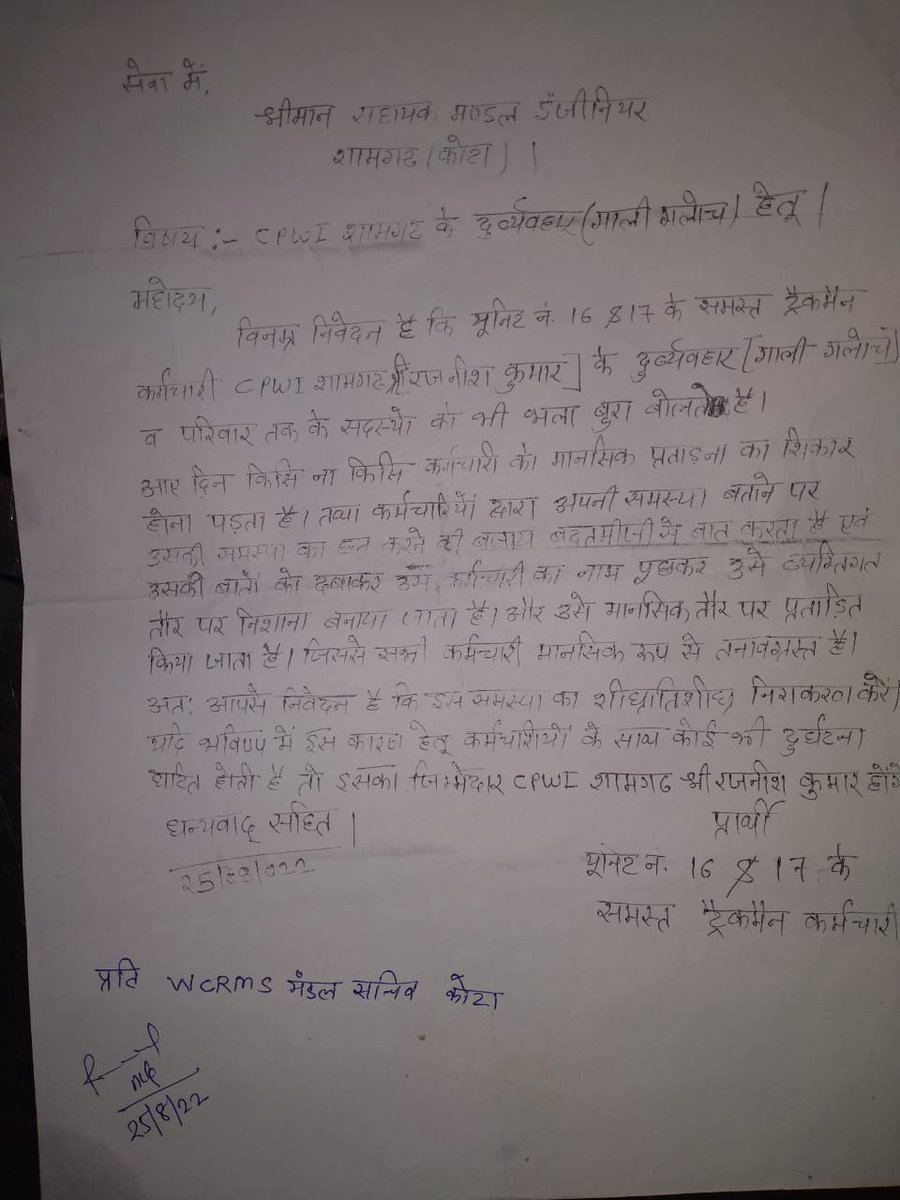 सेवा में,
श्रीमान सहायक मण्डल इंजीनियर
शामगढ (कोटा) ।
विषय :- CPWI शामगढ के दुर्व्यवहार (गाली गलोच) हेतू ।
महोदय,
विनम्र निवेदन है कि यूनिट नं. 16 & 17 के समस्त ट्रैकमैन
कर्मचारी CPWI शामगढ श्री रजनीश कुमार] के दुर्व्यवहार [गाली गलोच]
व परिवार तक के सदस्यो को भी भला बुरा बोलते है।
आए दिन किसि ना किसि कर्मचारी को मानसिक प्रताड़ना का शिकार
होना पड़ता है। तथा कर्मचारियों द्वारा अपनी समस्या बताने पर
उसकी समस्या का हल करने की बजाय बदतमीजी से बात करता है एवं
उसकी बातों को दबाकर उस कर्मचारी का नाम पूछकर उसे व्यक्तिगत
तौर पर निशाना बनाया जाता है। और उसे मानसिक तौर पर प्रताड़ित
किया जाता है। जिससे सभी कर्मचारी मानसिक रूप से तनावग्रस्त है।
अतः आपसे निवेदन है कि इस समस्या का शीघ्रातिशीघ्र निराकरण करें।
यदि भविष्य में इस कारण हेतू कर्मचारीयों के साथ कोई भी दुर्घटना
घटित होती है तो इसका जिम्मेदार CPWI शामगढ श्री रजनीश कुमार होंगे
धन्यवाद् सहित ।
प्रार्थी
25/08/2022
यूनिट नं. 16 & 17 के
समस्त ट्रैकमैन कर्मचारी
प्रति WCRMS मंडल सचिव कोटा
25/8/22